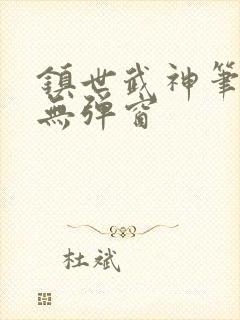 鎮世武神筆
無彈窗
杜斌